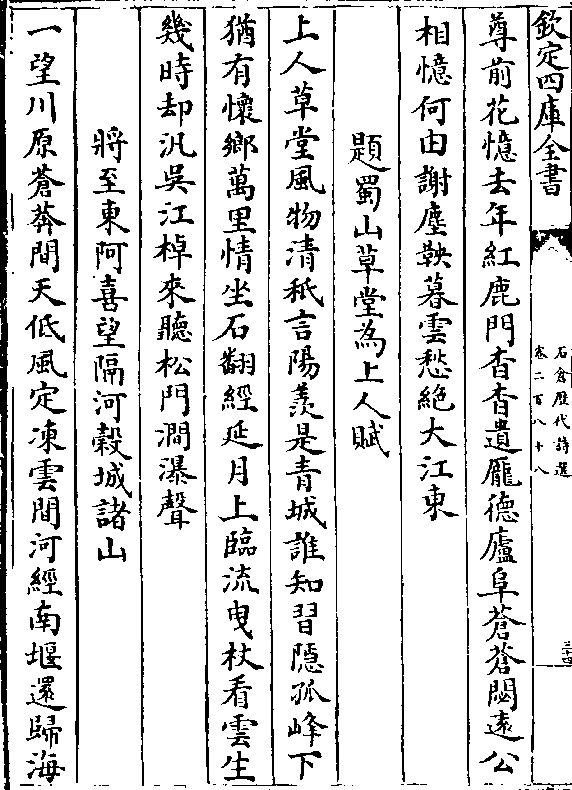 欽定四庫全書
石倉歷代詩選
卷二百八十八
三十四
尊前花憶去年紅鹿門杳杳遺龎德廬阜蒼蒼閟遠公
相憶何由謝塵鞅暮雲愁絶大江東
題蜀山草堂為上人賦
上人草堂風物清秖言陽羨是青城誰知習隱孤峰下
猶有懷鄉萬里情坐石翻經延月上臨流曳杖看雲生
幾時却汎吳江棹來聽松門澗瀑聲
將至東阿喜望隔河穀城諸山
一望川原蒼莽間天低風定凍雲間河經南堰還歸海